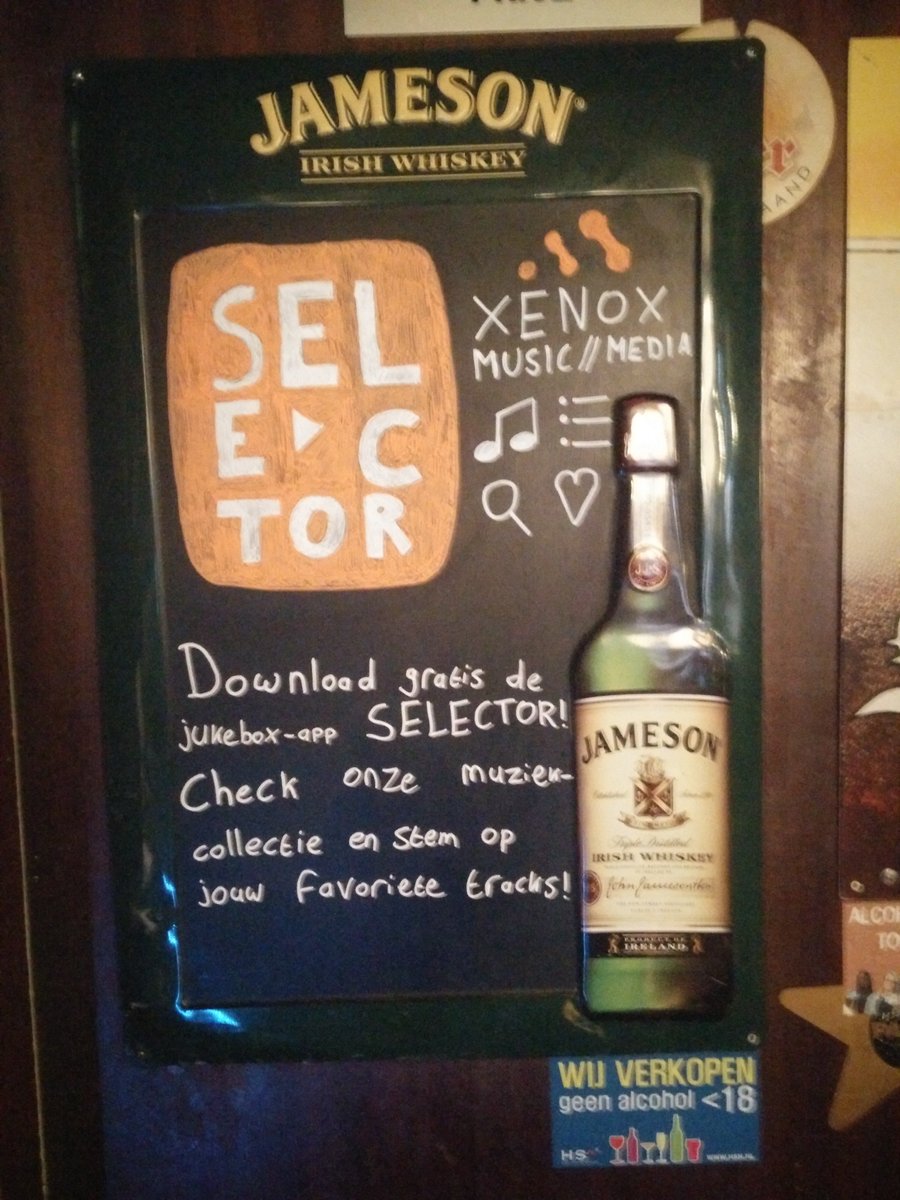 JAMESON
IRISH WHISKEY
SEL
EC
TOR
XENOX
MUSIC//MEDIA
Download gratis de
jukebox-app SELECTOR!
Check onze muziek-
collectie en stem op
jouw favoriete tracks!
JAMESON
Triple Distilled
IRISH WHISKEY
John Jameson & Son
PRODUCT OF
IRELAND
WIJ VERKOPEN
geen alcohol <18
WWW.HSN.NL
ALCO
TO